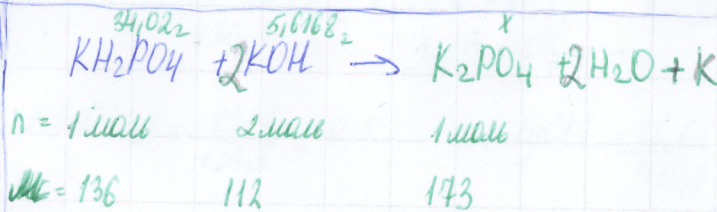 34,02г 5,6168г x
KH₂PO₄ +2KOH → K₂PO₄ +2H₂O + K
n = 1моль 2моль 1моль
= 136 112 173